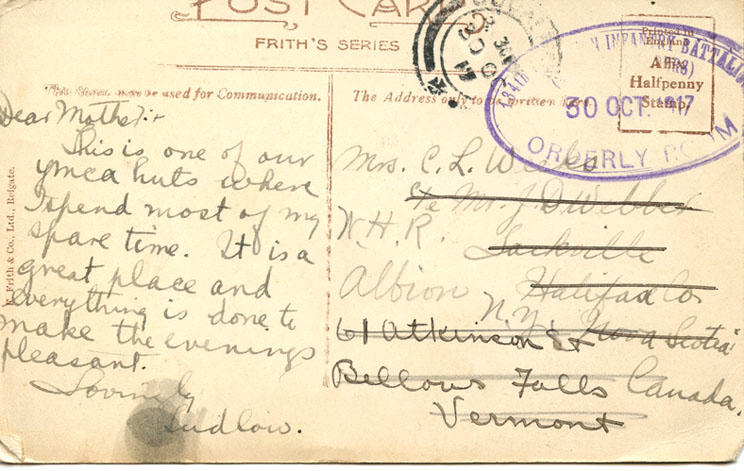 POST CARD
FRITH'S SERIES
Printed in
England
Affix
Halfpenny
Stamp
INFANTRY BATTALION
30 OCT. 17
ORDERLY ROOM
be used for Communication.
The Address only to be written here.
F. Frith & Co., Ltd., Reigate.
Dear Mother:-
This is one of our
ymca huts where
I spend most of my
spare time. It is a
great place and
everything is done to
make the evenings
pleasant.
Lovingly
Ludlow.
Mrs. C. L.
c/o Mr. J. D. Webber
W. H. R.
Sackville
Albion
Halifax Co.
N. Y.
Nova Scotia
61 Atkinson St
Canada.
Bellows Falls
Vermont